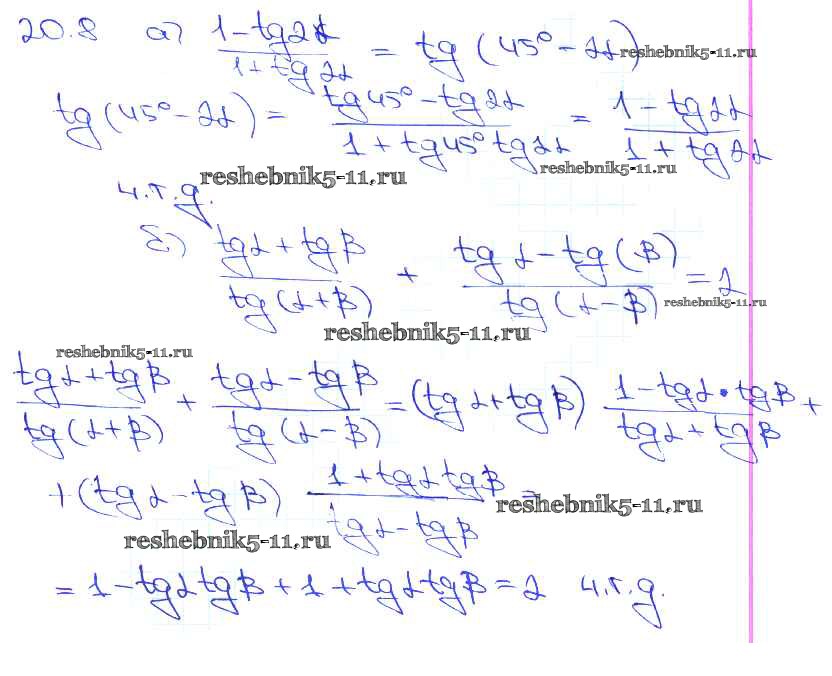 20.8 а) (1 - tg2α)/(1 + tg2α) = tg(45° - 2α)
reshebnik5-11.ru
tg(45° - 2α) = (tg45° - tg2α)/(1 + tg45° tg2α) = (1 - tg2α)/(1 + tg2α)
reshebnik5-11.ru
reshebnik5-11.ru
ч.т.д.
б) (tgα + tgβ)/(tg(α + β)) + (tgα - tg(β))/(tg(α - β)) = 2
reshebnik5-11.ru
reshebnik5-11.ru
reshebnik5-11.ru
(tgα + tgβ)/(tg(α + β)) + (tgα - tgβ)/(tg(α - β)) = (tgα + tgβ) (1 - tgα · tgβ)/(tgα + tgβ) +
+ (tgα - tgβ) (1 + tgα tgβ)/(tgα - tgβ) =
reshebnik5-11.ru
reshebnik5-11.ru
= 1 - tgα tgβ + 1 + tgα tgβ = 2 ч.т.д.